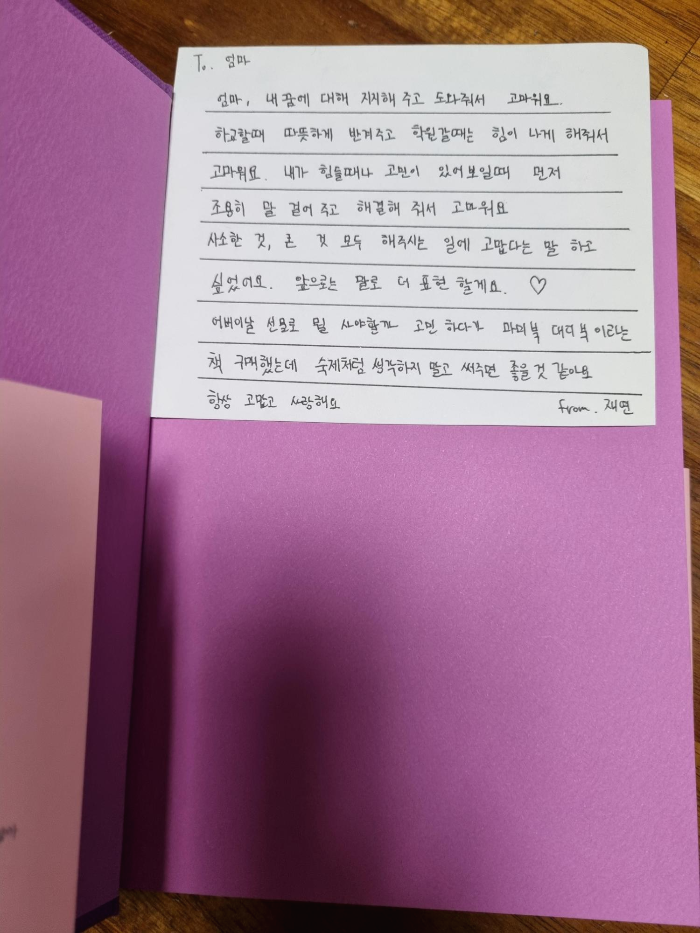 To. 엄마
엄마, 내 꿈에 대해 지지해 주고 도와줘서 고마워요.
하교할때 따뜻하게 반겨주고 학원갈때는 힘이 나게 해줘서
고마워요. 내가 힘들때나 고민이 있어보일때 먼저
조용히 말 걸어 주고 해결해 줘서 고마워요
사소한 것, 큰 것 모두 해주시는 일에 고맙다는 말 하고
싶었어요. 앞으로는 말로 더 표현 할게요. ♡
어버이날 선물로 뭘 사야할까 고민 하다가 마미북 대디북 이라는
책 구매했는데 숙제처럼 생각하지 말고 써주면 좋을 것 같아요
항상 고맙고 사랑해요 from. 재연